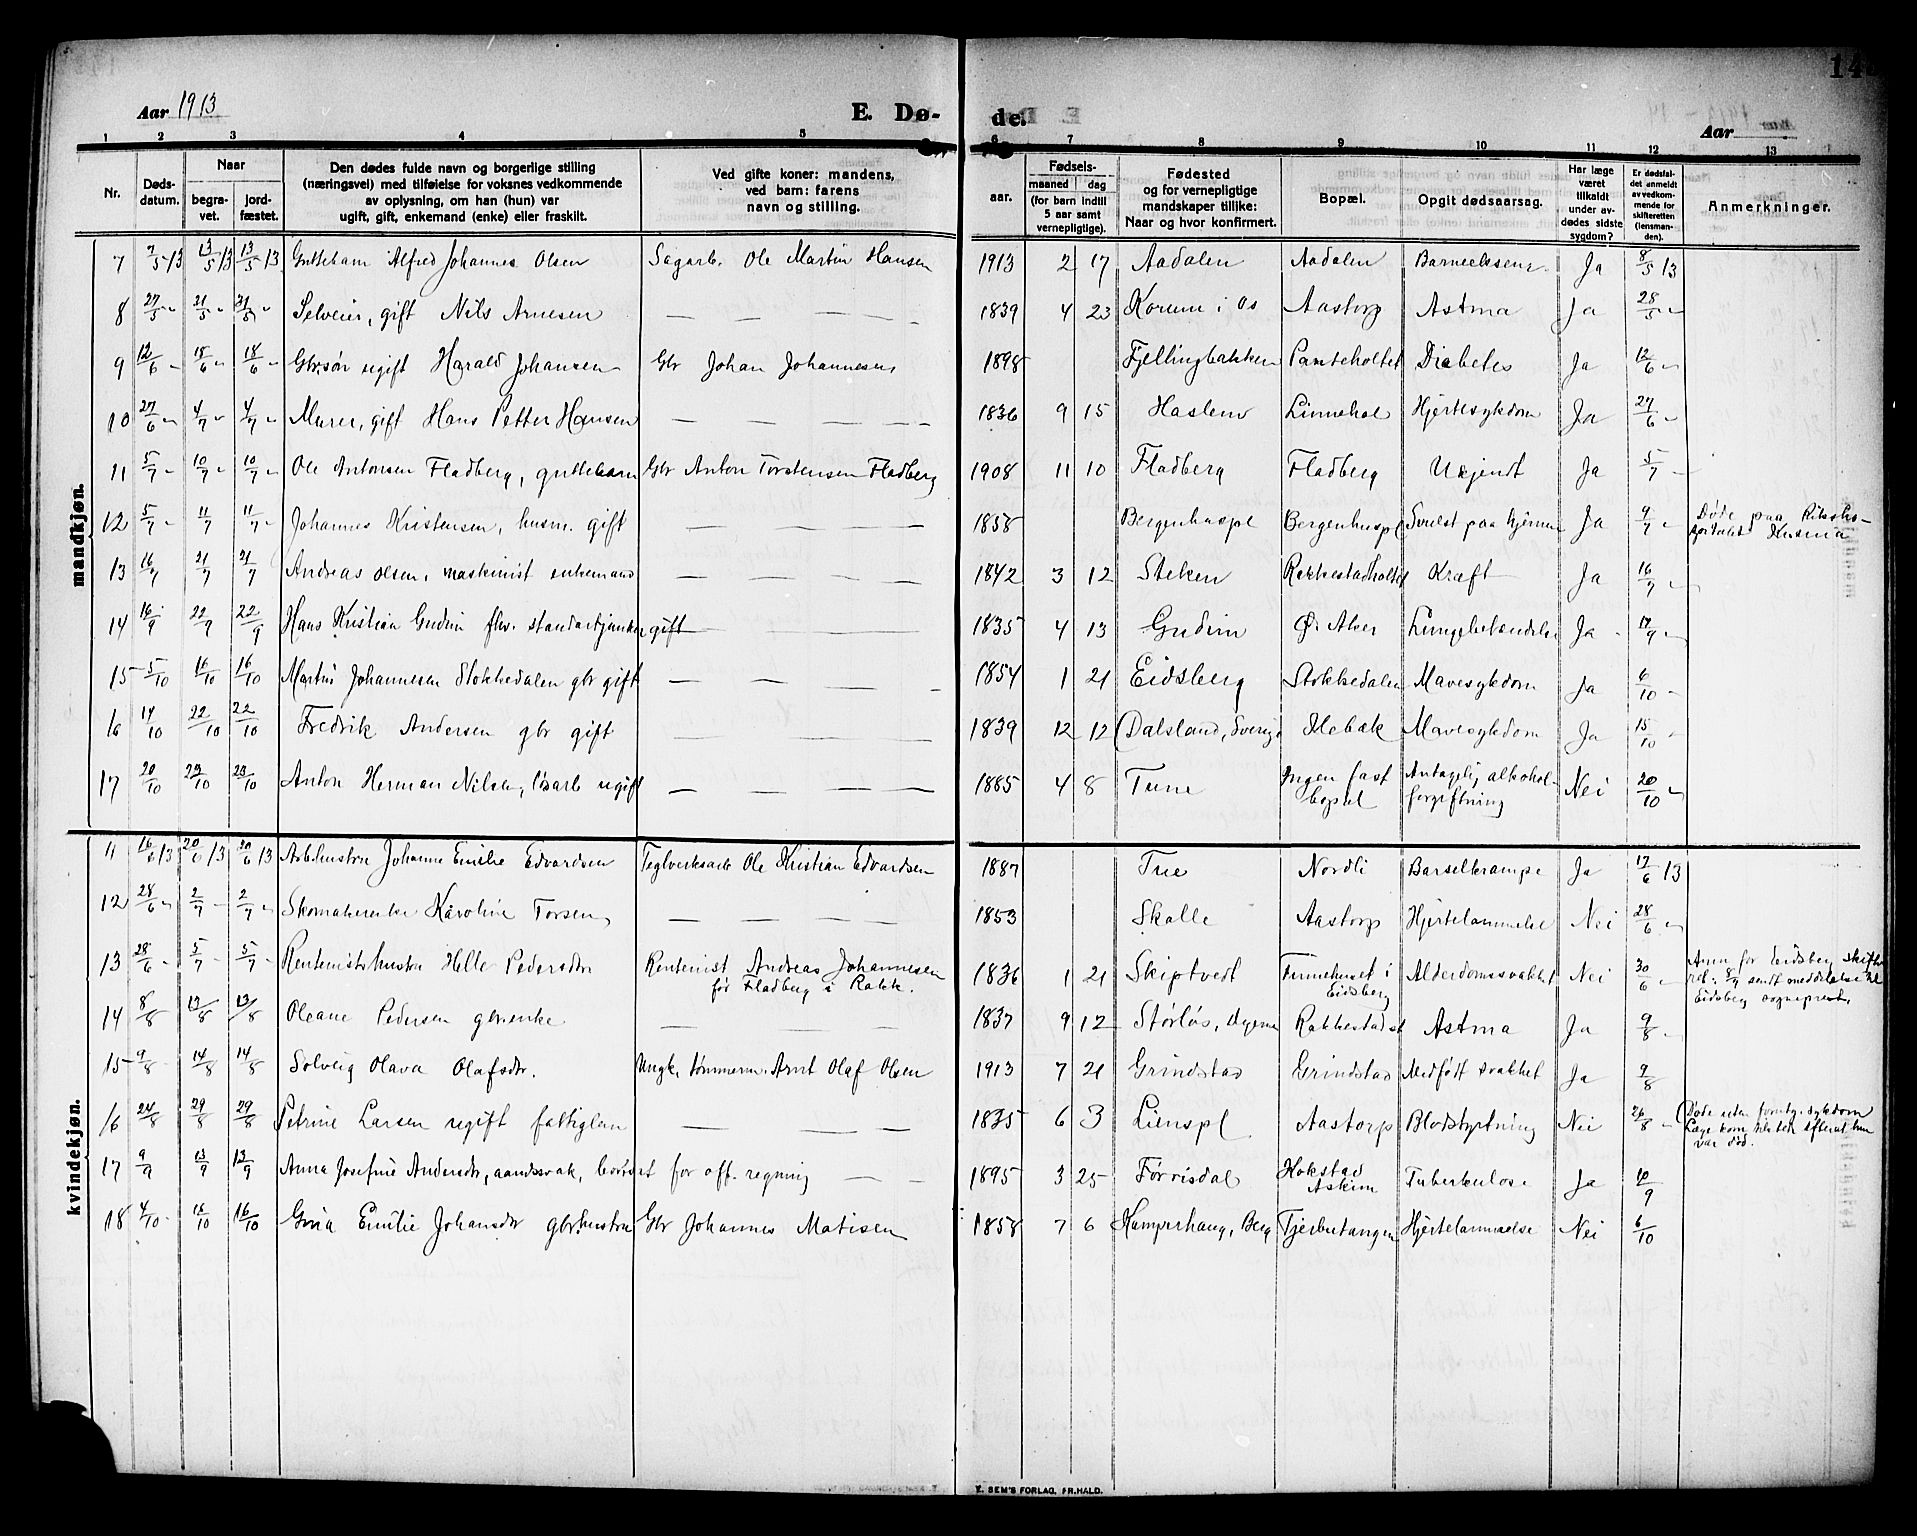 Aar 1913 E. Dø- de. Aar 14
1 2 3 4 5 6 7 8 9 10 11 12 13
Nr. Døds-datum. Naar begra-vet. jord-fæstet. Den dødes fulde navn og borgerlige stilling (næringsvei) med tilføielse for voksnes vedkommende av oplysning, om han (hun) var ugift, gift, enkemand (enke) eller fraskilt. Ved gifte koner: mandens, ved barn: farens navn og stilling. aar. Fødsels- maaned dag (for barn indtil 5 aar samt vernepligtige). Fødested og for vernepligtige mandskaper tillike: Naar og hvor konfirmert. Bopæl. Opgit dødsaarsag. Har læge været tilkaldt under av-dødes sidste sygdom? Er dødsfal-det anmeldt av vedkom-mende for skifteretten (lensman-den). Anmerkninger.
mandkjøn.
7 7/5 13 13/5 13 13/5 13 Guttebarn Alfred Johannes Olsen Sagarb. Ole Martin Hansen 1913 2 17 Aadalen Aadalen Ja 8/5 13
8 27/5 " 31/5 " 31/5 " Selveier, gift Nils Arnesen — — — — 1839 4 23 Korum i Os Aastorp Astma Ja 28/5 "
9 12/6 " 18/6 " 18/6 " Gbr.søn ugift Harald Johansen Gbr Johan Johannesen 1898 Fjellingbakken Diabetes Ja 12/6 "
10 27/6 " 4/7 " 4/7 " Murer, gift Hans Petter Hansen — — — — 1836 9 15 Haslem Linnekol Hjertesykdom Ja 27/6 "
11 5/7 " 10/7 " 10/7 " Ole Antonsen Fladberg, guttebarn Gbr Anton Torstensen Fladberg 1908 11 10 Fladberg Fladberg Ukjendt Ja 5/7 "
12 5/7 " 11/7 11/7 " Johannes Kristensen, husm. gift — — — — 1858 Bergenhuspl Bergenhuspl Svulst paa hjernen Ja 9/7 " Døde paa Riksho-
spitalet Krania
13 16/7 21/7 21/7 Andreas Olsen, maskinist enkemand — — — — 1842 3 12 Steken Rakkestadholtet Kræft Ja 16/7 "
14 16/9 22/9 22/9 Hans Kristian Gudim fhv. standartjunker gift — — — 1835 4 13 Gudim Ø. Aker Lungebetændelse Ja 17/9 "
15 5/10 16/10 16/10 Martin Johannesen Stokkedalen gbr gift — — — — 1854 1 21 Eidsberg Stokkedalen Mavesykdom Ja 6/10 "
16 14/10 22/10 22/10 Fredrik Andersen gbr gift — — — — 1839 12 12 (Dalsland, Sverige Mavesykdom Ja 15/10 "
17 20/10 23/10 23/10 Anton Herman Nilsen, løsarb ugift — — — — 1885 4 8 Tune Ingen fast Antagelig alkohol- Nei 20/10 "
bopæl forgiftning
kvindekjøn.
11 16/6 13 20/6 13 20/6 13 Arb.hustru Johanne Emilie Edvardsen Teglverksarb Ole Kristian Edvardsen 1887 Nordli Barselkrampe Ja 17/6 13
12 28/6 " 2/7 " 2/7 " Skomakerenke Karoline Torsen — — — — 1853 Skalle Aastorp Hjertelammelse Nei 28/6 "
13 28/6 " 5/7 " 5/7 " Rentenisthustru Helle Pedersdtr Rentenist Andreas Johannesen 1836 1 21 Skiptvedt i Alderdomssvakhet Nei 30/6 " Anm for Eidsberg skifte
før Fladberg i Rakk. Eidsberg ret: 8/7 sendt meddelelse til
Eidsberg sogneprest.
14 8/8 13/8 13/8 Oleane Pedersen gbr.enke — — — 1837 9 12 Rakkestadst Astma Ja 9/8 "
15 9/8 14/8 14/8 Solveig Olava Olafsdtr. Ungk. tømmerm. Arnt Olaf Olsen 1913 7 21 Grindstad Grindstad Medfødt svakhet Ja 9/8
16 24/8 29/8 29/8 Petrine Larsen ugift fattiglem — — — 1835 6 3 Lienspl Aastorp Blodstyrtning Nei 26/8 " (Døde uten forutg. sykdom
Læge kom tilstede efterat hun
var død.
17 9/9 13/9 13/9 Anna Josefine Andersdtr, aandssvak, bortsat for off. regning — — 1895 3 25 Førrisdal Hokstad Tuberkulose Ja 10/9
Askim
18 4/10 " 16/10 16/10 Emilie Johansdtr gbrhustru Gbr Johannes Matisen 1858 7 6 Kamperhaug, Berg Tjerbutangen Hjertelammelse Nei 6/10
E. SEM'S FORLAG, FR.HALD.